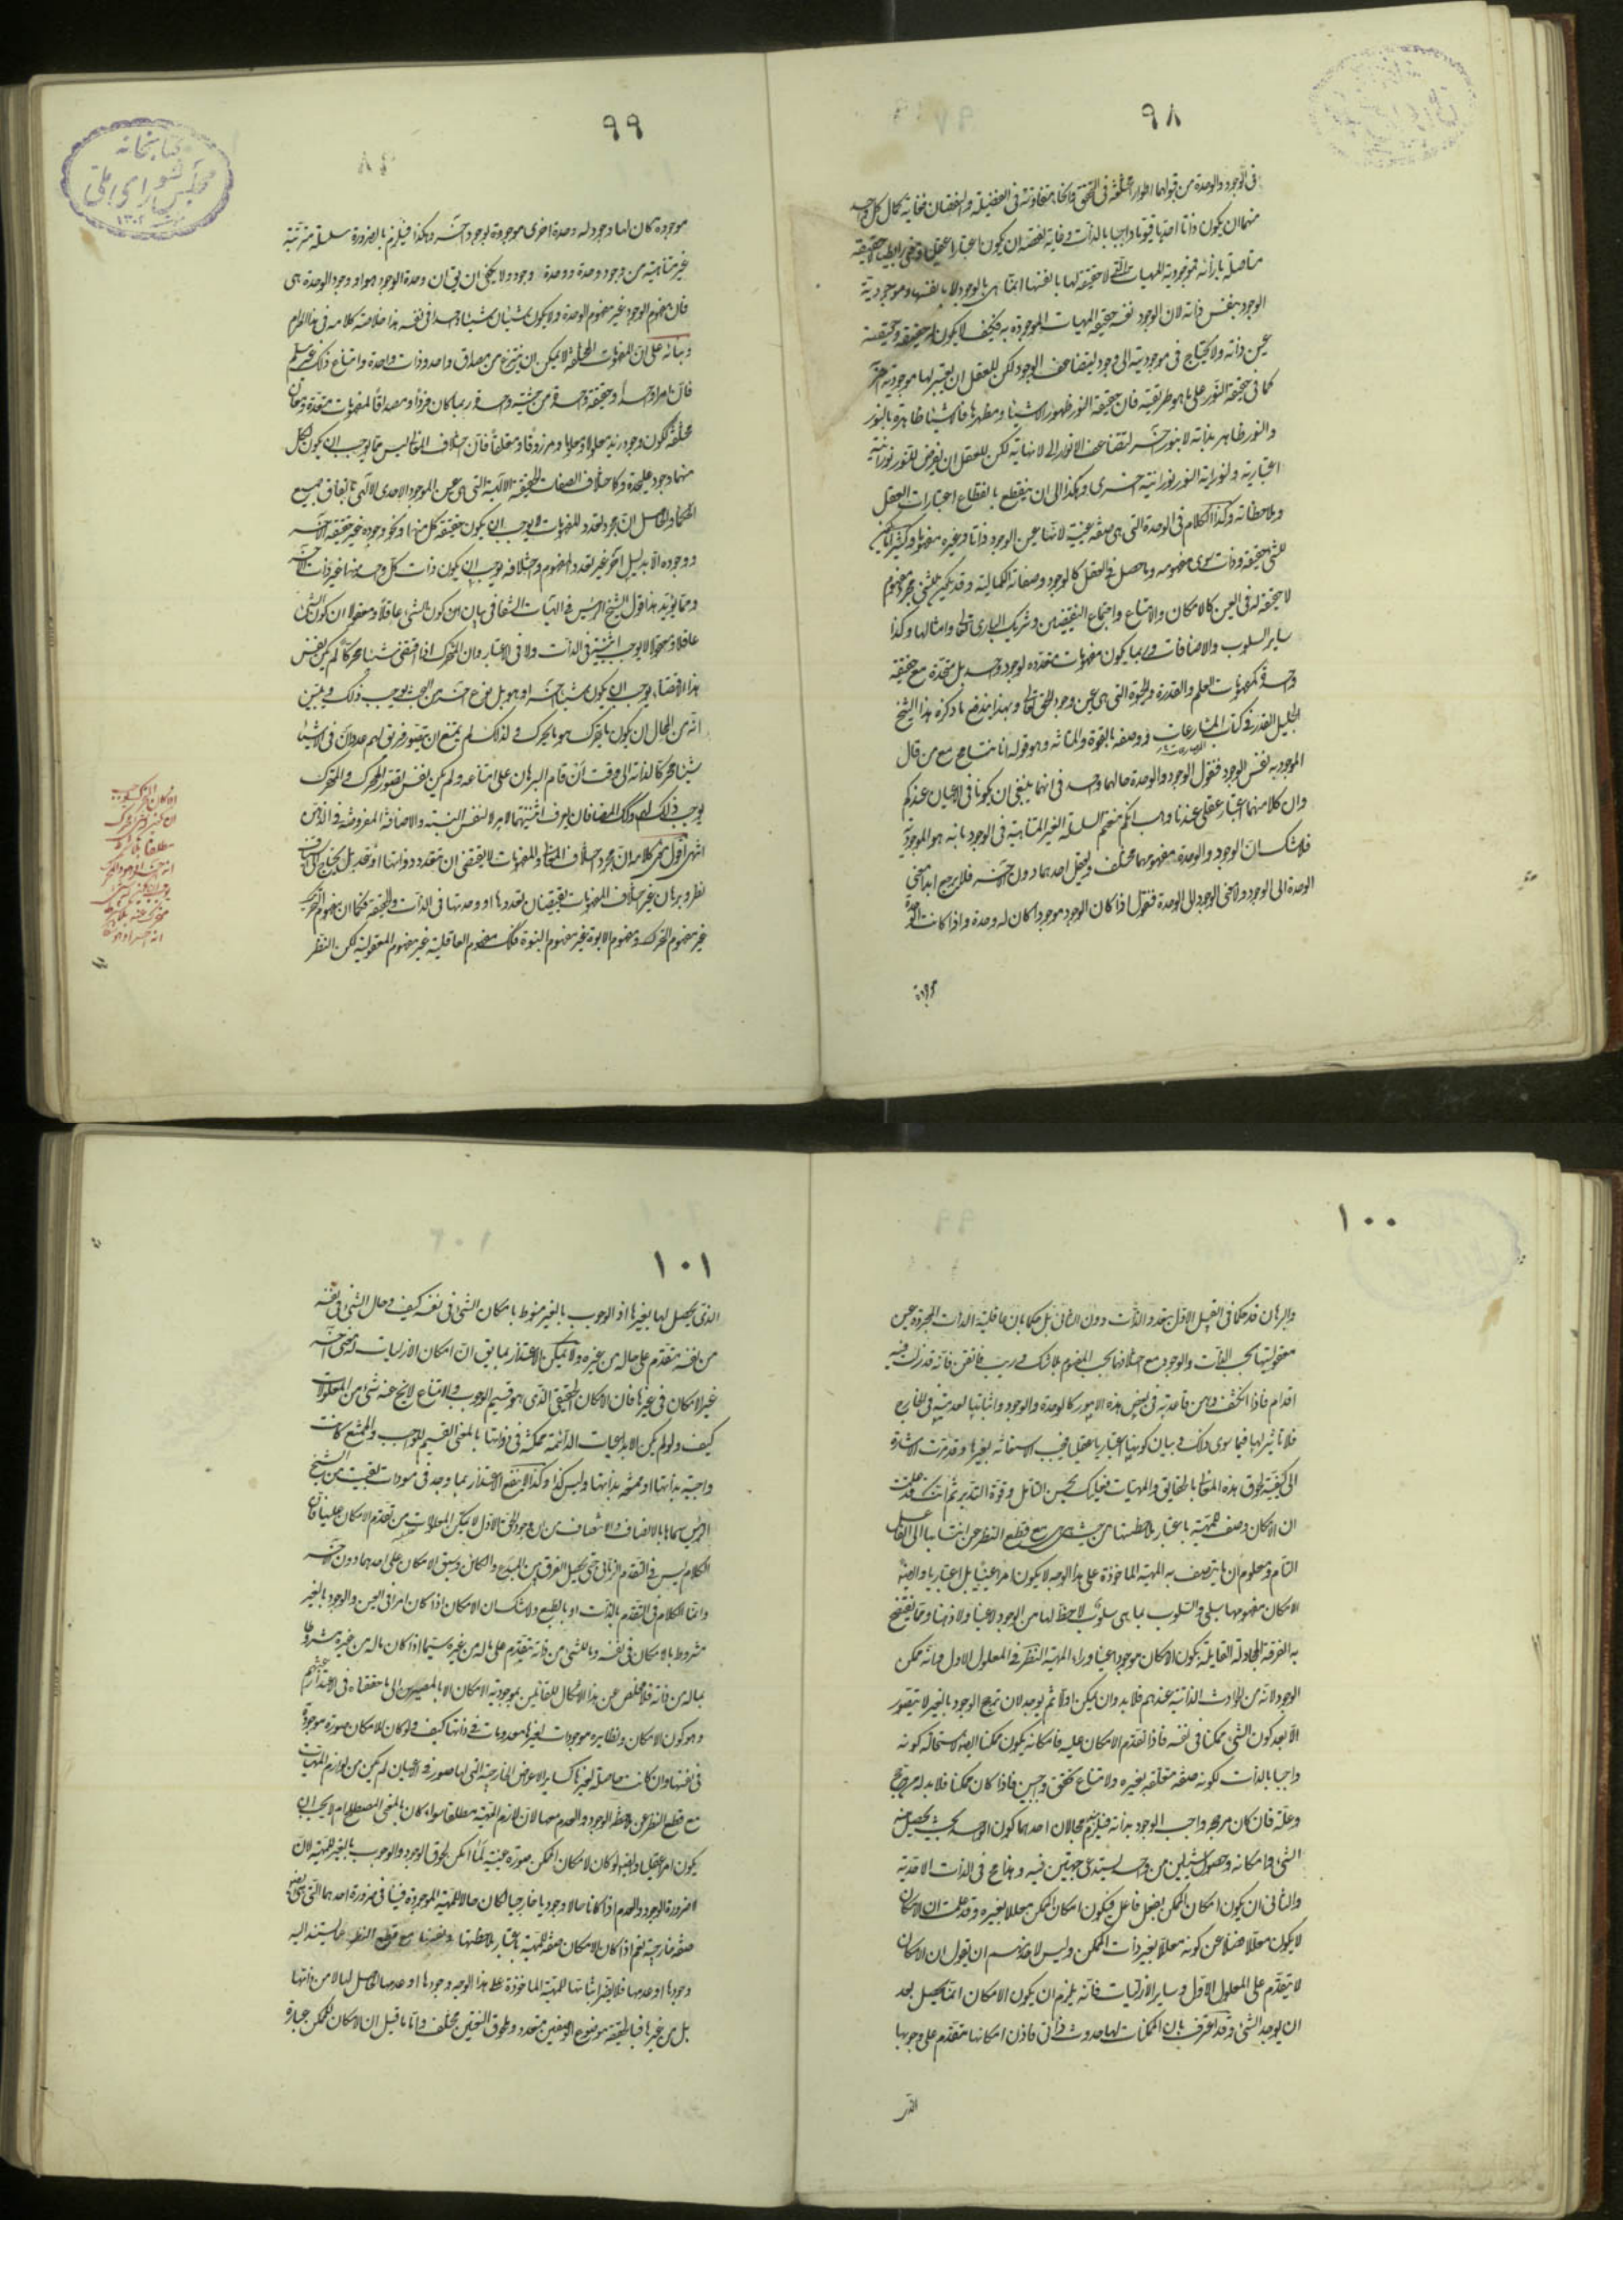 ٩٨
فى الوجود والوحدة من قبولهما اطوار مختلفة فى التحقق وانحاء متفاوتة فى الفضيلة والنقصان فغاية كمال كل واحد
منهما ان يكون ذاتا احديا قيوما واجبا بالذات وغاية نقصه ان يكون اعتبارا عقليا
متاصلة بازائه فموجودية المهيات التى لا حقيقة لها بانفسها انما هى بالوجود لا بانفسها وموجودية
الوجود بنفس ذاته لان الوجود نفسه حقيقة المهيات الموجودة به فكيف لا يكون له حقيقة وحقيقته
عين ذاته ولا يحتاج فى موجوديته الى وجود ليتضاعف الوجود لكن للعقل ان يعتبر لها موجودية اخرى
كما فى حقيقة النور على ما هو طريقته فان حقيقة النور ظهور الاشياء ومظهرها فالاشياء ظاهرة بالنور
والنور ظاهر بذاته لا بنور اخر لتضاعف الانوار الى لا نهاية لكن للعقل ان يفرض للنور نورانية
اعتبارية ولنورانية النور نورانية اخرى وهكذا الى ان ينقطع بانقطاع اعتبارات العقل
وملاحظاته وكذا الكلام فى الوحدة التى هى صفة عينية لانها عين الوجود ذاتا وغيره مفهوما وكثيرا ما يكون
للشئ حقيقة وذات سوى مفهومه وما حصل فى العقل كالوجود وصفاته الكمالية وقد يكون للشئ مجرد مفهوم
لا حقيقة له فى العين كالامكان والامتناع واجتماع النقيضين وشريك البارى تعالى وامثالها وكذا
ساير السلوب والاضافات وربما يكون مفهومات متعددة لوجود واحد بل متحدة مع حقيقة
واحدة كمفهومات العلم والقدرة والحيوة التى هى عين وجود الحق تعالى وبهذا يندفع ما ذكره هذا الشيخ
الجليل القدر فى كتاب المشارعات ووصفه بالقوة والمتانة وهو قوله انا نتسامح مع من قال
الموجود به نفس الوجود فنقول الوجود والوحدة حالهما واحد فى انهما ينبغى ان يكونا فى الاعيان عندكم
وان كلا منهما اعتبار عقلى عندنا وهب انكم منعتم السلسلة الغير المتناهية فى الوجود بانه هو الموجودية
فلا شك ان الوجود والوحدة مفهومهما مختلف ويعقل احدهما دون الاخر فلا يرجع ابدا معنى
الوحدة الى الوجود ولا معنى الوجود الى الوحدة فنقول اذا كان الوجود موجودا كان له وحدة واذا كانت الوحدة
موجودة
٩٩
موجودة كان لها وجود له وحدة اخرى موجودة بوجود اخر وهكذا فيلزم بالضرورة سلسلة مترتبة
غير متناهية من وجود وحدة ووحدة وجود ولا يمكن ان يق ان وحدة الوجود هو او وجود الوحدة هى
فان مفهوم الوجود غير مفهوم الوحدة ولا يكون شيئان شيئا واحدا فى نفسه هذا خلاصة كلامه فى هذا المرام
وبناؤه على ان المفهومات المختلفة لا يمكن ان ينتزع من مصداق واحد وذات واحدة وامتناع ذلك غير مسلم
فان امرا واحدا وحقيقة واحدة من حيثية واحدة ربما كان فردا ومصداقا لمفهومات متعددة ومعان
مختلفة ككون وجود زيد معلولا ومعلوما ومرزوقا ومتعلقا فان اختلاف المعانى ليس مما يوجب ان يكون لكل
منها وجود عليحدة وكاختلاف الصفات الحقيقية الالهية التى هى عين الموجود الاحدى الالهى باتفاق جميع
الحكماء والحاصل ان مجرد تعدد المفهومات لا يوجب ان يكون حقيقة كل منها ونحو وجوده غير حقيقة الاخر
ووجوده الا بدليل اخر غير تعدد المفهوم واختلافه يوجب ان يكون ذات كل واحد منها غير ذات الاخر
ومما يؤيد هذا قول الشيخ الرئيس فى الهيات الشفا فى بيان ان كون الشئ عاقلا ومعقولا ان كون الشئ
عاقلا ومعقولا لا يوجب اثنينية فى الذات ولا فى الاعتبار وان المتحرك اذا اقتضى شيئا محركا لم يكن نفس
هذا الاقتضاء يوجب ان يكون شيئا اخر او هو بل نوع اخر من البحث يوجب ذلك ويبين
انه من المحال ان يكون ما يتحرك هو ما يحرك ولذلك لم يمتنع ان يتصور فريق لهم عدد ان فى الاشياء
شيئا محركا لذاته الى وقت ان قام البرهان على امتناعه ولم يكن نفس تصور المحرك والمتحرك
يوجب ذلك وكذلك المضافان يعرف اثنينيتهما لامر لا لنفس النسبة والاضافة المفروضة فى الذهن
انتهى اقول معنى كلامه ان مجرد اختلاف المعانى والمفهومات لا يقتضى ان يتعدد ذواتها او يتحد بل يحتاج الى استيناف
نظر وبرهان غير اختلاف المفهومات يقتضيان تعددها او وحدتها فى الذات والحقيقة فكما ان مفهوم المحرك
غير مفهوم المتحرك ومفهوم الابوة غير مفهوم البنوة فكذلك مفهوم العاقلية غير مفهوم المعقولية لكن النظر
كتابخانه
مجلس شوراى ملى
١٣٠٢
١٠٠
والبرهان قد حكما فى القبيل الاول بتعدد الذات دون الثانى بل حكما بان عاقلية الذات المجردة عين
معقوليتها بحسب الذات والوجود مع اختلافهما بحسب المفهوم بلا شك وريب فاتقن فانه قد زلت فيه
اقدام فاذا انكشف وهن قاعدته فى بعض هذه الامور كالوحدة والوجود واثباتها لعدميته فى الخارج
فلا تاثير لها فيما سوى ذلك وبيان كونها اعتباريا عقليا فيجب الاستعانة بغيرها وقد مرت الاشارة
الى كيفية لحوق هذه المعانى بالحقايق والمهيات فعليك بحسن التامل وقوة التدبر ثم انك قد علمت
ان الامكان وصف للمهية باعتبار ملاحظتها من حيث هى هى مع قطع النظر عن انتسابها الى الفاعل
التام ومعلوم ان ما يتصف به المهية الماخوذة على هذا الوجه لا يكون امرا عينيا بل اعتباريا وايضا
الامكان مفهومها سلبى والسلوب بما هى سلوب لا حظ لها من الوجود لا عينا ولا ذهنا ومما يفتضح
به الفرقة المجادلة القايلة بكون الامكان موجودا عينا وراء المهية النظر فى المعلول الاول فانه ممكن
الوجود لانه من الحوادث الذاتية عندهم فلا بد وان يمكن اولا ثم يوجد لان ترجح الوجود بالغير لا يتصور
الا بعد كون الشئ ممكنا فى نفسه فاذا تقدم الامكان عليه فامكانه يكون ممكنا ايضا لاستحالة كونه
واجبا بالذات لكونه صفة متعلقة بغيره ولامتناع تحقق واجبين فاذا كان ممكنا فلا بد له من مرجح
وعلة فان كان مرجحه واجب الوجود بذاته فيلزم محالان احدهما كون الواحد بحت يحصل منه
الشئ وامكانه وحصول شيئين من واحد يستدعى جهتين فيه وهذا مح فى الذات الاحدية
والثانى ان يكون امكان الممكن بفعل فاعل فيكون امكان الممكن معللا بغيره وقد علمت ان الامكان
لا يكون معللا فضلا عن كونه معللا بغير ذات الممكن وليس لاحد منهم ان يقول ان الامكان
لا يتقدم على المعلول الاول وساير الازليات فانه يلزم ان يكون الامكان انما يحصل بعد
ان يوجد الشئ وقد اعترف بان الممكنات لها حدوث ذاتى فاذن امكانها متقدم على وجوبها
الذى
١٠١
الذى يحصل لها بغيرها اذ الوجوب بالغير منوط بامكان الشئ فى نفسه كيف وحال الشئ فى نفسه
من نفسه متقدم على حاله من غيره ولا يمكن الاعتذار بما يق ان امكان الازليات له معنى اخر
غير الامكان فى غيرها فان الامكان الحقيقى الذى هو قسيم الوجوب والامتناع لا يخ عنه شئ من المعلولات
كيف ولو لم يكن الابداعيات الدائمة ممكنة فى ذواتها بالمعنى القسيم للواجب والممتنع كانت
واجبة بذاتها او ممتنعة بذاتها وليس كذا وكذا لا ينفع الاعتذار بما وجد فى مسودات بقيت من الشيخ
الرئيس سماها بالانصاف والانتصاف من ان وجود الحق الاول لا يمكن المعلولات من تقدم الامكان عليها فان
الكلام ليس فى التقدم الزمانى حتى يحصل الفرق بين المبدع والكائن وسبق الامكان على احدهما دون الاخر
وانما الكلام فى التقدم بالذات او بالطبع ولا شك ان الامكان اذا كان امرا فى العين والوجود بالغير
مشروط بالامكان فى نفسه وما للشئ من ذاته يتقدم على ما له من غيره سيما اذا كان ما له من غيره مشروطا
بما له من ذاته فلا مخلص عن هذا الاشكال للقائلين بموجودية الامكان الا بالمصير الى ما حققناه فى الاعتذار عنهم
وهو كون الامكان ونظايره موجودات لغيرها معدومات فى ذاتها كيف ولو كان للامكان صورة موجودة
فى نفسها وان كانت حاصلة لغيرها كساير الاعراض الخارجية التى لها صور فى الاعيان لم يكن من لوازم المهيات
مع قطع النظر عن ملاحظة الوجود والعدم معها لان لازم المهية مطلقا سواء كان بالمعنى المصطلح ام لا يجب ان
يكون امرا عقليا وايضا لو كان لامكان الممكن صورة عينية لما امكن لحوق الوجود والوجوب بالغير للمهية لان
ضرورة الوجود والعدم اذا كانا حالا وجوديا خارجيا لكان حالا للمهية الموجودة فينا فى ضرورة احدهما التى هى ايضا
صفة خارجية نعم اذا كان الامكان صفة للمهية باعتبار ملاحظتها ونفسها مع قطع النظر عما يستند اليه
وجودها او عدمها فلا يضر اثباتها للمهية الماخوذة على هذا الوجه وجودها او عدمها الحاصل لها لا من ذاتها
بل من غيرها فبالحقيقة موضوع الوصفين متعدد وطوق النعتين مختلف واما ما قيل ان الامكان للممكن عبارة